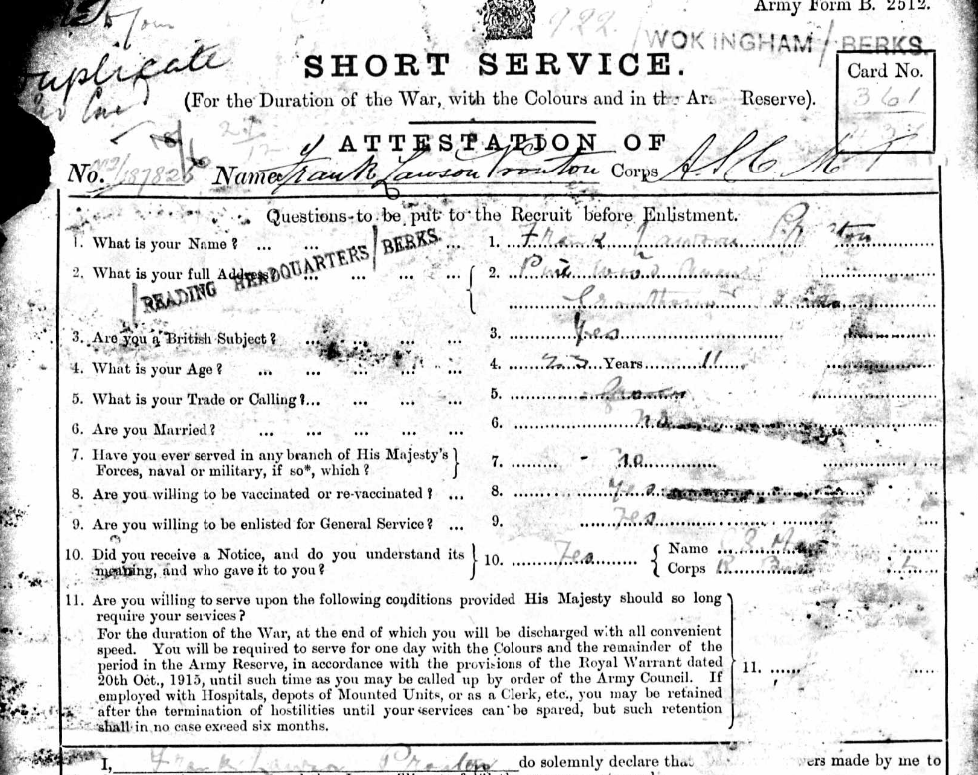 Army Form B. 2512.
922
WOKINGHAM / BERKS.
Duplicate
SHORT SERVICE.
Card No.
361
(For the Duration of the War, with the Colours and in the Reserve).
ATTESTATION OF
No. Name Frank Lawson Corps A.S.C. M T
Questions to be put to the Recruit before Enlistment.
1. What is your Name? ... ... ... 1. Frank Lawson
READING HEADQUARTERS / BERKS.
2. What is your full Address? ... ... ... { 2.
3. Are you a British Subject? ... ... ... ... 3. Yes
4. What is your Age? ... ... ... ... ... 4. 23 Years 11
5. What is your Trade or Calling?... ... ... ... 5.
6. Are you Married? ... ... ... ... ... 6. No
7. Have you ever served in any branch of His Majesty's
Forces, naval or military, if so*, which? } 7. No
8. Are you willing to be vaccinated or re-vaccinated? ... 8. Yes
9. Are you willing to be enlisted for General Service? ... 9. Yes
10. Did you receive a Notice, and do you understand its
meaning, and who gave it to you? } 10. Yes { Name
Corps
11. Are you willing to serve upon the following conditions provided His Majesty should so long
require your services?
For the duration of the War, at the end of which you will be discharged with all convenient
speed. You will be required to serve for one day with the Colours and the remainder of the
period in the Army Reserve, in accordance with the provisions of the Royal Warrant dated
20th Oct., 1915, until such time as you may be called up by order of the Army Council. If
employed with Hospitals, depots of Mounted Units, or as a Clerk, etc., you may be retained
after the termination of hostilities until your services can be spared, but such retention
shall in no case exceed six months. } 11.
I, Frank Lawson do solemnly declare that made by me to